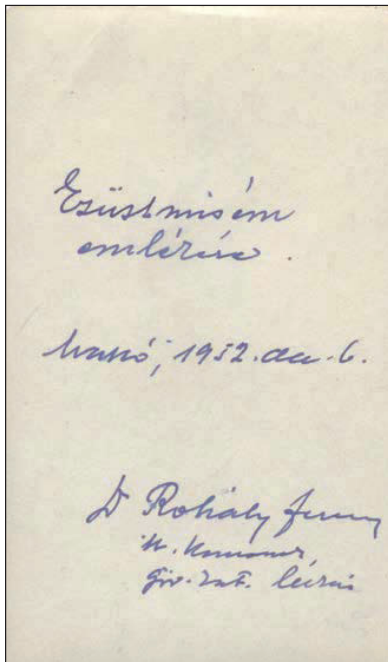 Ezüstmisém
emlékére.
Makó, 1952. dec. 6.
Dr Rohály Ferenc
gör. kat. lelkész